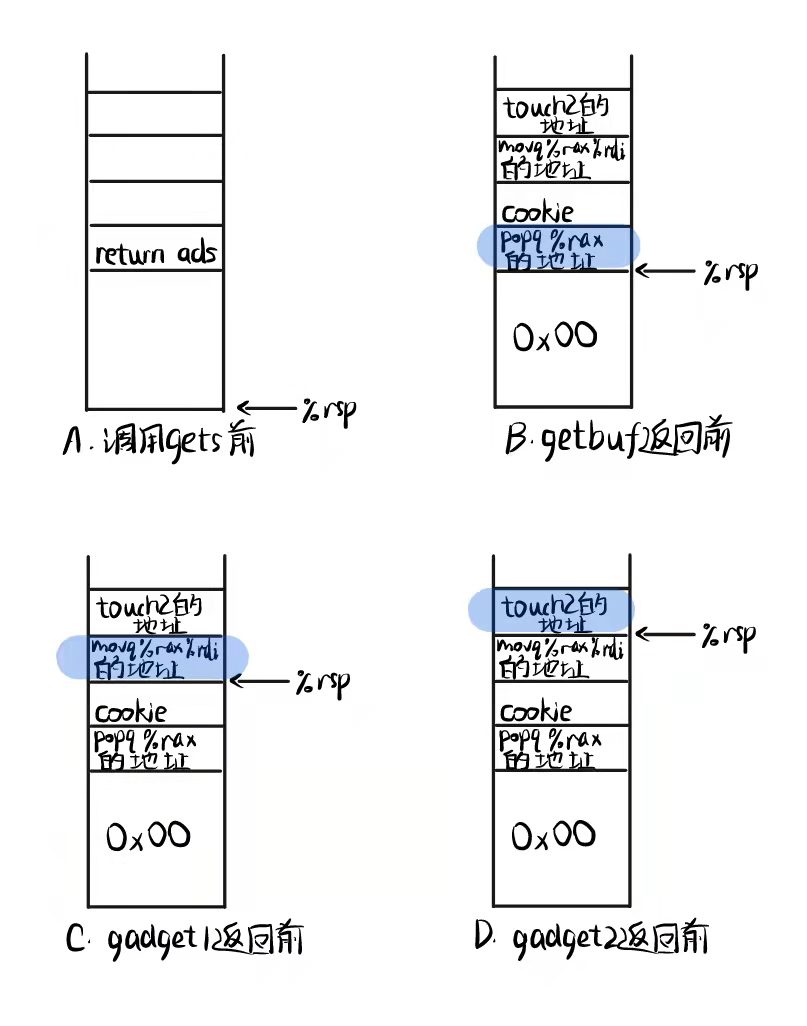 return ads
%rsp
A.调用gets前
touch2的
地址
movq%rax%rdi
的地址
cookie
popq %rax
的地址
%rsp
0x00
B.getbuf返回前
touch2的
地址
movq%rax%rdi
的地址
%rsp
cookie
popq %rax
的地址
0x00
C. gadget1返回前
touch2的
地址
%rsp
movq%rax%rdi
的地址
cookie
popq %rax
的地址
0x00
D. gadget2返回前